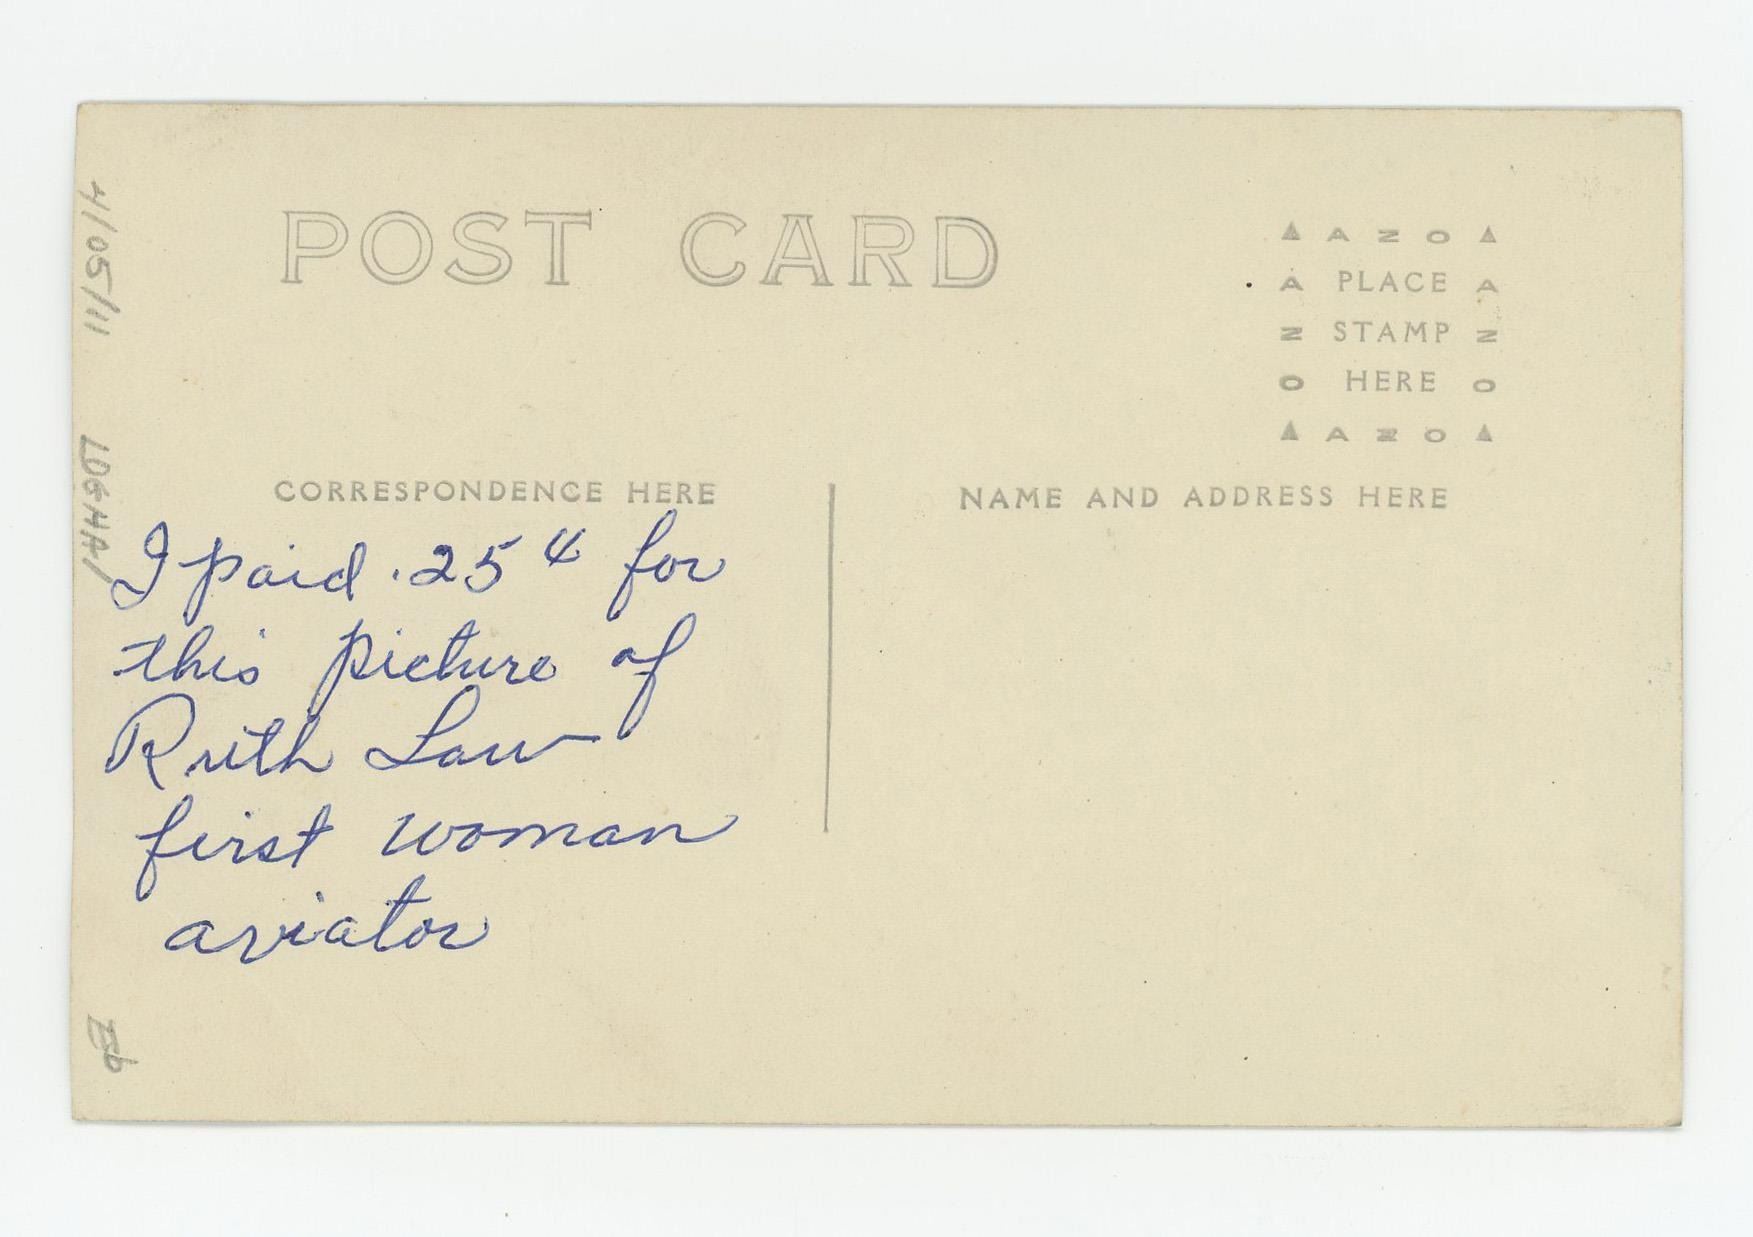 POST CARD
▲ A Z O ▲
A PLACE A
Z STAMP Z
O HERE O
▲ A Z O ▲
CORRESPONDENCE HERE
NAME AND ADDRESS HERE
I paid .25¢ for
this picture of
Ruth Law
first woman
aviator
4/05/11